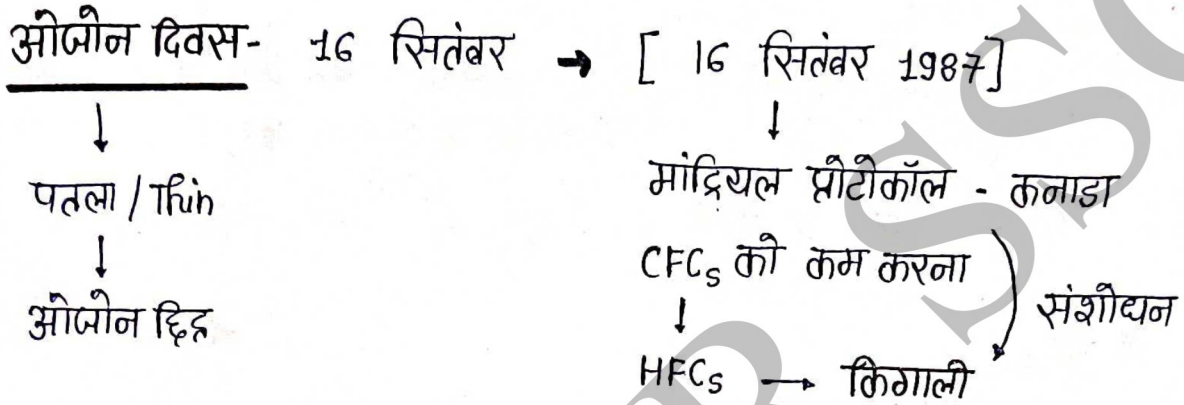 ओजोन दिवस- 16 सितंबर → [ 16 सितंबर 1987]
↓
पतला / Thin
↓
ओजोन छिद्र
↓
मांट्रियल प्रोटोकॉल - कनाडा
CFCs को कम करना
↓
HFCs → किगाली
संशोधन